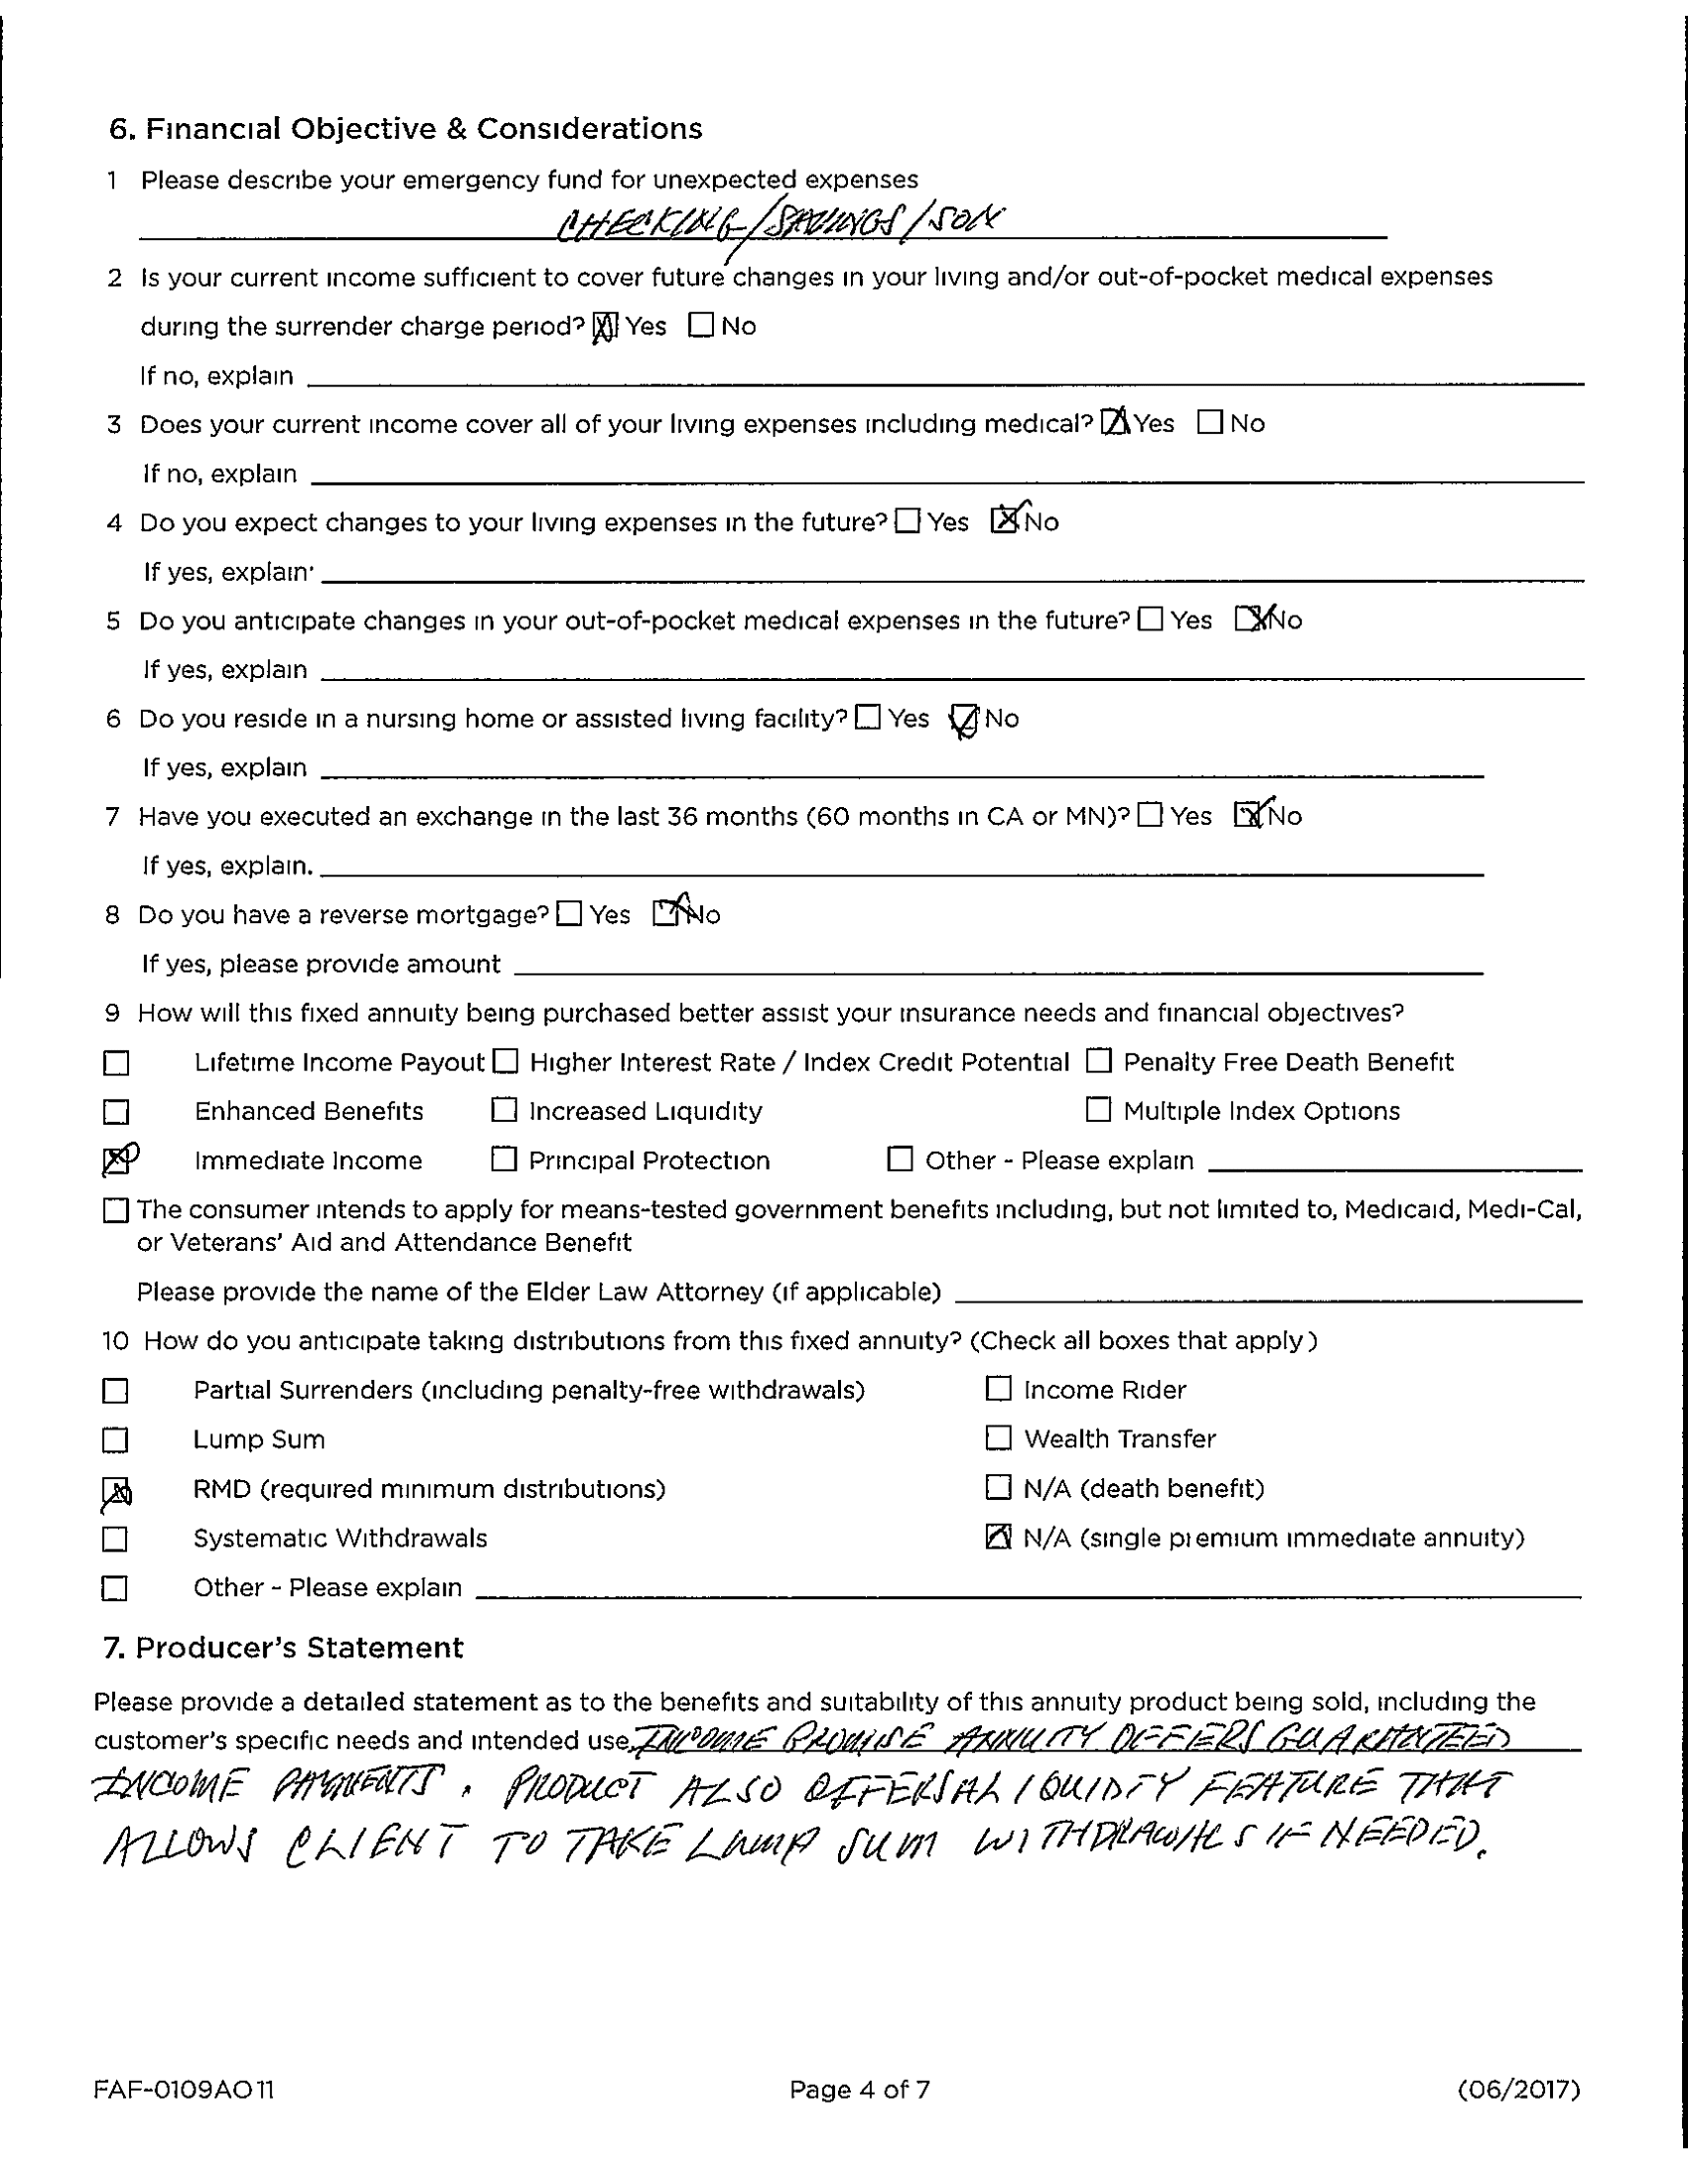 6. Financial Objective & Considerations
1 Please describe your emergency fund for unexpected expenses
CHECKING/SAVINGS/SON
2 Is your current income sufficient to cover future changes in your living and/or out-of-pocket medical expenses
during the surrender charge period? ☒ Yes ☐ No
If no, explain
3 Does your current income cover all of your living expenses including medical? ☒ Yes ☐ No
If no, explain
4 Do you expect changes to your living expenses in the future? ☐ Yes ☒ No
If yes, explain
5 Do you anticipate changes in your out-of-pocket medical expenses in the future? ☐ Yes ☒ No
If yes, explain
6 Do you reside in a nursing home or assisted living facility? ☐ Yes ☒ No
If yes, explain
7 Have you executed an exchange in the last 36 months (60 months in CA or MN)? ☐ Yes ☒ No
If yes, explain.
8 Do you have a reverse mortgage? ☐ Yes ☒ No
If yes, please provide amount
9 How will this fixed annuity being purchased better assist your insurance needs and financial objectives?
☐ Lifetime Income Payout ☐ Higher Interest Rate / Index Credit Potential ☐ Penalty Free Death Benefit
☐ Enhanced Benefits ☐ Increased Liquidity ☐ Multiple Index Options
☒ Immediate Income ☐ Principal Protection ☐ Other - Please explain
☐ The consumer intends to apply for means-tested government benefits including, but not limited to, Medicaid, Medi-Cal,
or Veterans' Aid and Attendance Benefit
Please provide the name of the Elder Law Attorney (if applicable)
10 How do you anticipate taking distributions from this fixed annuity? (Check all boxes that apply)
☐ Partial Surrenders (including penalty-free withdrawals) ☐ Income Rider
☐ Lump Sum ☐ Wealth Transfer
☒ RMD (required minimum distributions) ☐ N/A (death benefit)
☐ Systematic Withdrawals ☒ N/A (single premium immediate annuity)
☐ Other - Please explain
7. Producer's Statement
Please provide a detailed statement as to the benefits and suitability of this annuity product being sold, including the
customer's specific needs and intended use. INCOME PROMISE ANNUITY OFFERS GUARANTEED
INCOME PAYMENTS. PRODUCT ALSO OFFERS A LIQUIDITY FEATURE THAT
ALLOWS CLIENT TO TAKE LUMP SUM WITHDRAWALS IF NEEDED.
FAF-0109AO 11 Page 4 of 7 (06/2017)